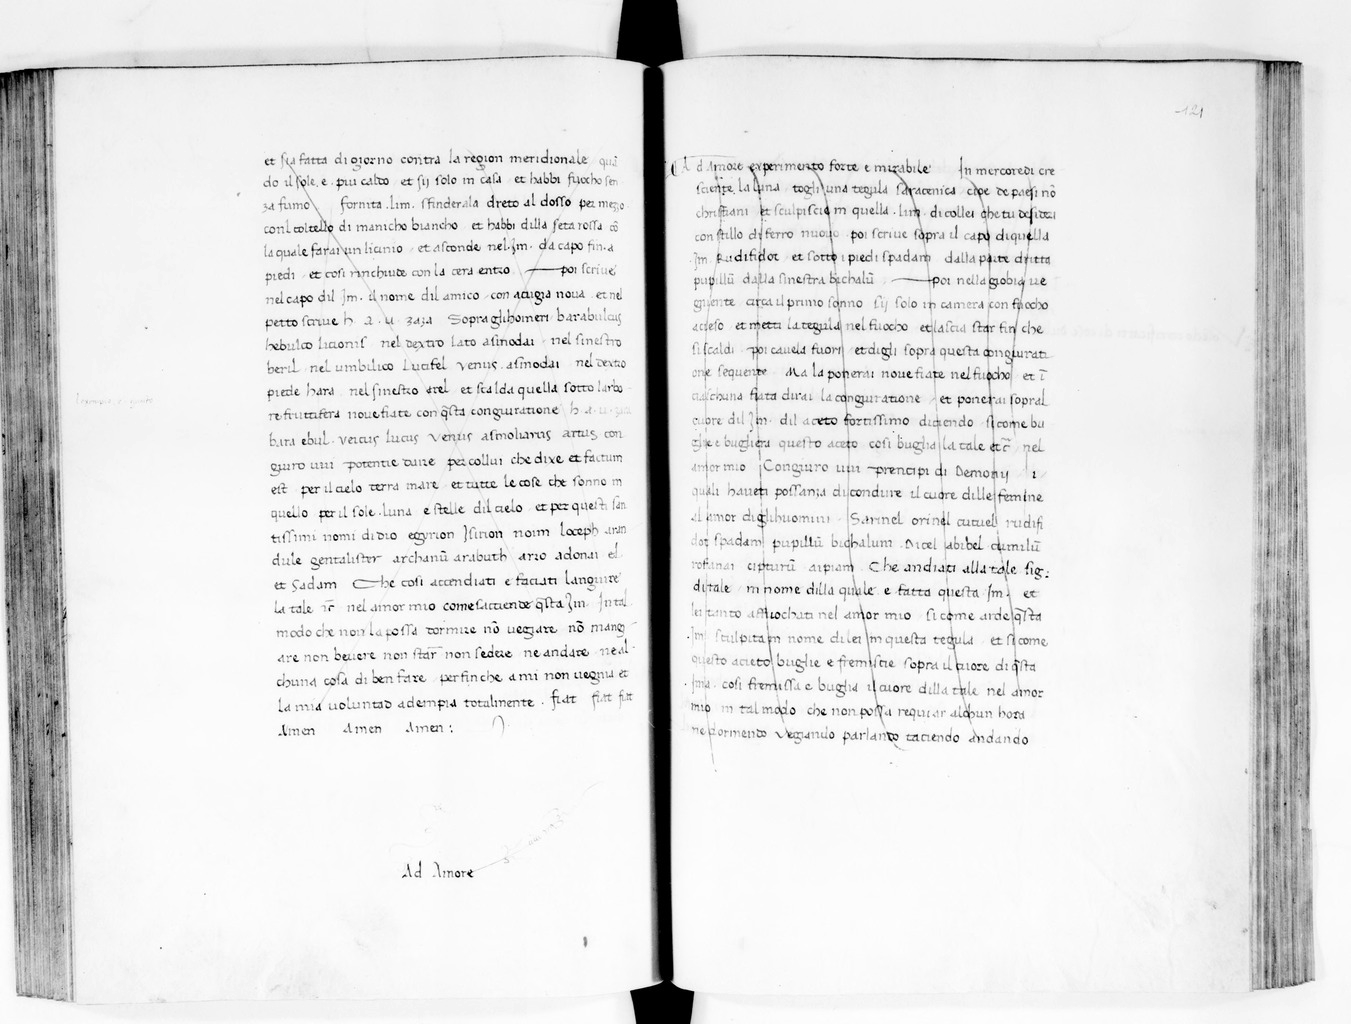 et sia fatta di giorno contra la region meridionale quã
do il sole, e, piu caldo et sij solo in casa et habbi fuocho sen
za fumo fornita .lim. sfinderala dreto al dosso per mezo
con'l coltello di manicho biancho et habbi dilla seta rossa cõ
la quale farai un licinio et asconde nel .Jm. da capo fin . a
piedi et cosi rinchiude con la cera entro poi scrive
nel capo dil Jm. il nome dil amico con acugia nova et nel
petto scrive h . a . u . zaza Sopra gli homeri barabulcus
hebulco licionis nel dextro lato asinodai nel sinestro
beril nel umbilico Lucifel venus asmodai nel dextro
piede hara nel sinestro arel et scalda quella sotto larbo
re fruttifera nove fiate con q̃sta congiuratione h . a . u . zaza
bara ebul . veicus lucus venus asmoliarus artus con
giuro uui potentie dure per collui che dixe et factum
est per il cielo terra mare et tutte le cose che sonno in
quello per il sole . luna e stelle dil cielo et per questi san
tissimi nomi di dio egyrion Jsirion noim loceph aran
dule gentalister archanũ arabuth arzo adonai el
et Sadam Che cosi accendiati e faciati languire
la tale &c̃ nel amor mio come sacciende q̃sta Jm. In tal
modo che non la possa dormire nõ vegiare nõ mangi
are non bevere non star non sedere ne andare ne al
chuna cosa di ben fare perfin che a mi non vegnia et
la mia voluntad adempia totalmente . fiat fiat fiat
Amen Amen Amen :
Ad Amore
121
Ad Amore experimento forte e mirabile In mercoredi cre
sciente la luna togli una tegula saracenica cioe de paesi nõ
christiani et sculpiscie in quella .lim. di collei che tu desideri
con stillo di ferro nuovo poi scrive sopra il capo di quella
.Jm. Rudifidot et sotto i piedi spadam dalla parte dritta
pupillũ dalla sinestra bichalũ poi nella giobia ve
gniente circa il primo sonno sij solo in camera con fuocho
acieso et metti la tegula nel fuocho et lascia star fin che
si scaldi poi cavela fuori et digli sopra questa congiurati
one sequente Ma la ponerai nove fiate nel fuocho et ĩ
cialchuna fiata dirai la congiuratione et ponerai sopral
cuore dil Jm. dil aceto fortissimo diciendo si come bu
glie e bugliera questo aceto cosi buglia la tale etc̃ nel
amor mio Congiuro uui prencipi di Demonij i
quali haveti possanza di condure il cuore dille femine
al amor di gli huomini Sarinel orinel cucuel rudifi
dot spadam pupillũ bichalum Dicel abibel cumilũ
rofanai cipturũ aipiam Che andiati alla tale fig:
di tale in nome dilla quale e fatta questa Jm. et
lei tanto affuochati nel amor mio si come arde q̃sta
.Jm. sculpita in nome di lei in questa tegula et si come
questo acieto buglie e fremiscie sopra il cuore di q̃sta
.Jma. cosi fremissa e buglia il cuore dilla tale nel amor
mio in tal modo che non possa requiar alchun hora
ne dormendo vegiando parlando taciendo andando